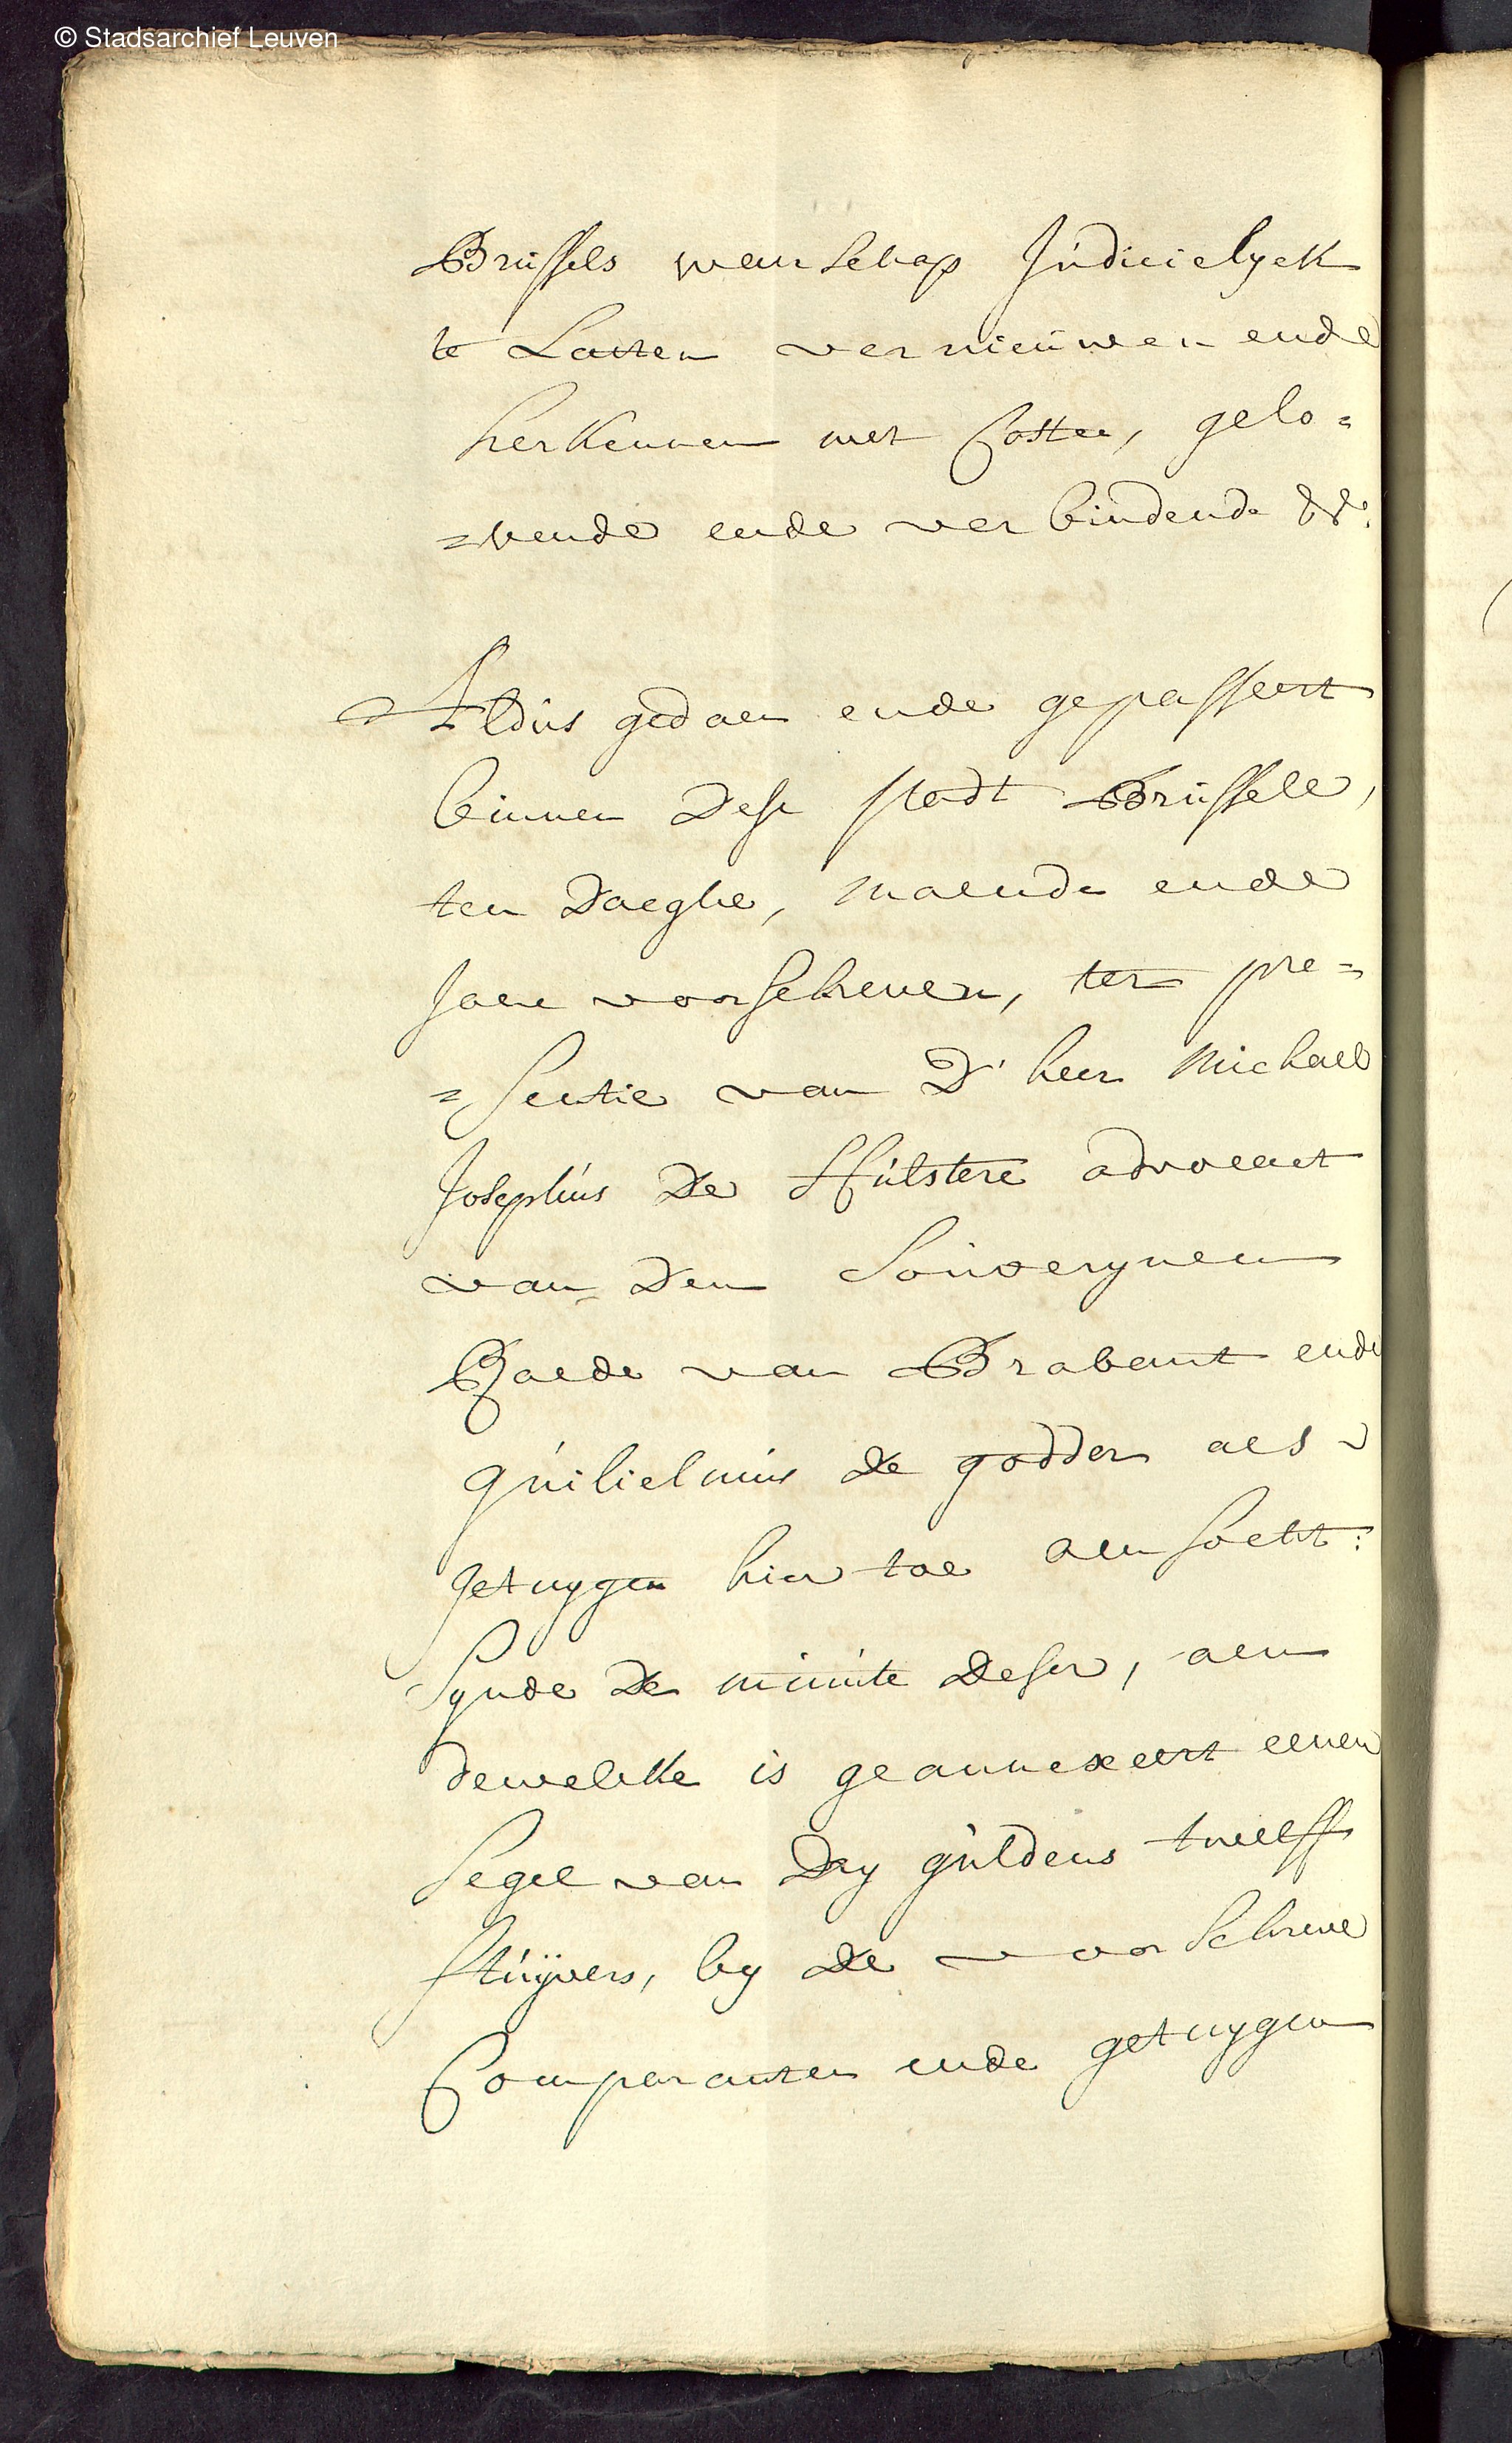 © Stadsarchief Leuven
Brussels wenschap Judicielyck
te Laeten vernieuwen ende
herkennen met Costen, gelo=
=vende ende verbindende &&:
Aldus gedaen ende gepasseert
binnen dese stadt Brussele,
ten daeghe, maende ende
Jaere voorschreven, ter pre=
=sentie van d'heer Michael
Josephus De Hulstere advocaet
van den Souverynen
Raede van Brabant ende
guilielmus de godder als
getuygen hier toe aensocht:
synde de minute deser, aen
dewelcke is geannexeert eenen
segel van dry guldens twelff
stuyvers, by de voorschreve
Comparanten ende getuygen